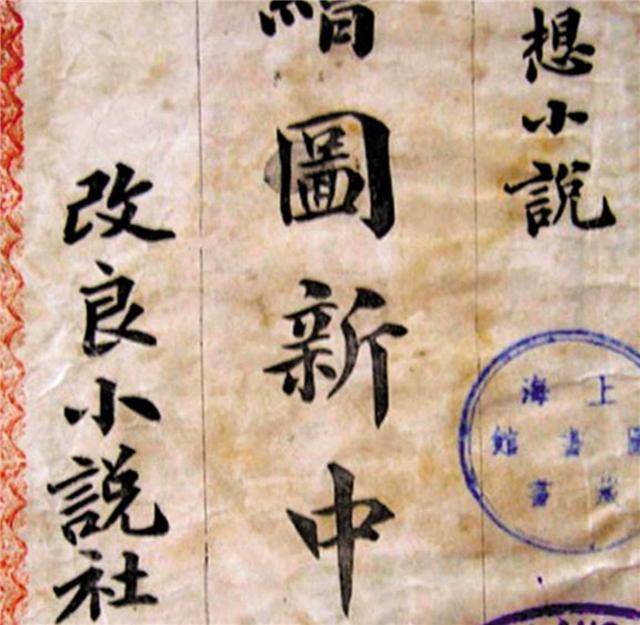 想小說
繪圖新中
改良小說社
上海
圖書館
藏書